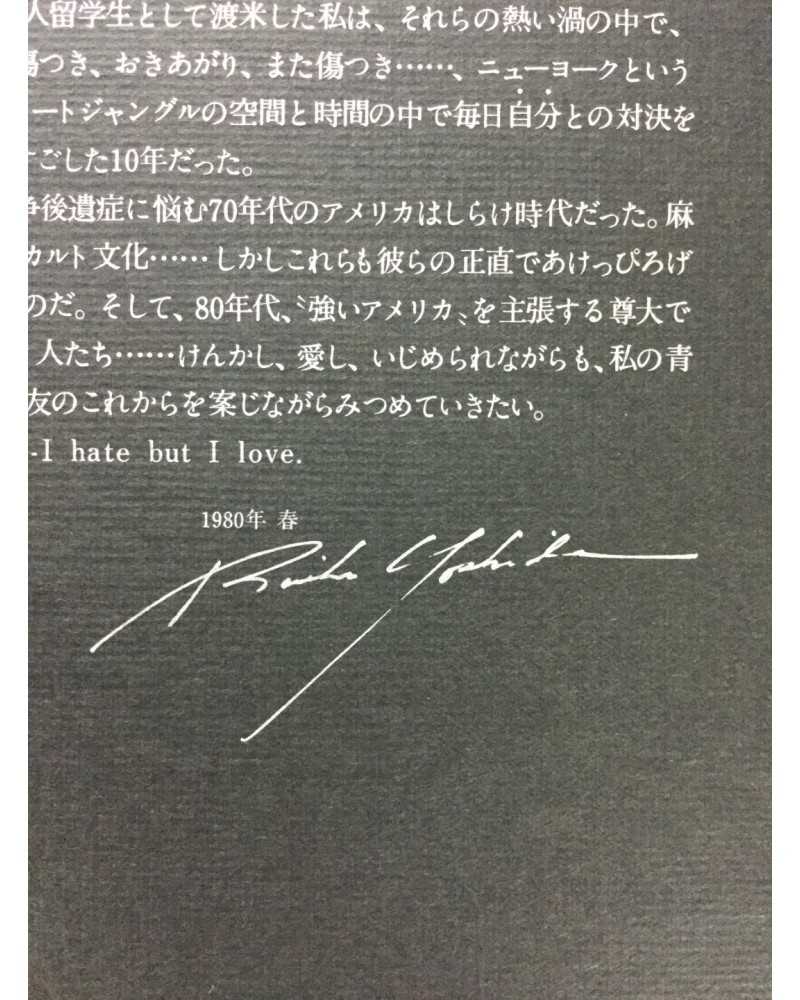 人留学生として渡米した私は、それらの熱い渦の中で、
傷つき、おきあがり、また傷つき……、ニューヨークという
ートジャングルの空間と時間の中で毎日自分との対決を
すごした10年だった。
争後遺症に悩む70年代のアメリカはしらけ時代だった。麻
カルト文化……しかしこれらも彼らの正直であけっぴろげ
のだ。そして、80年代、〝強いアメリカ〟を主張する尊大で
人たち……けんかし、愛し、いじめられながらも、私の青
友のこれからを案じながらみつめていきたい。
-I hate but I love.
1980年 春
Ruiko Yoshida